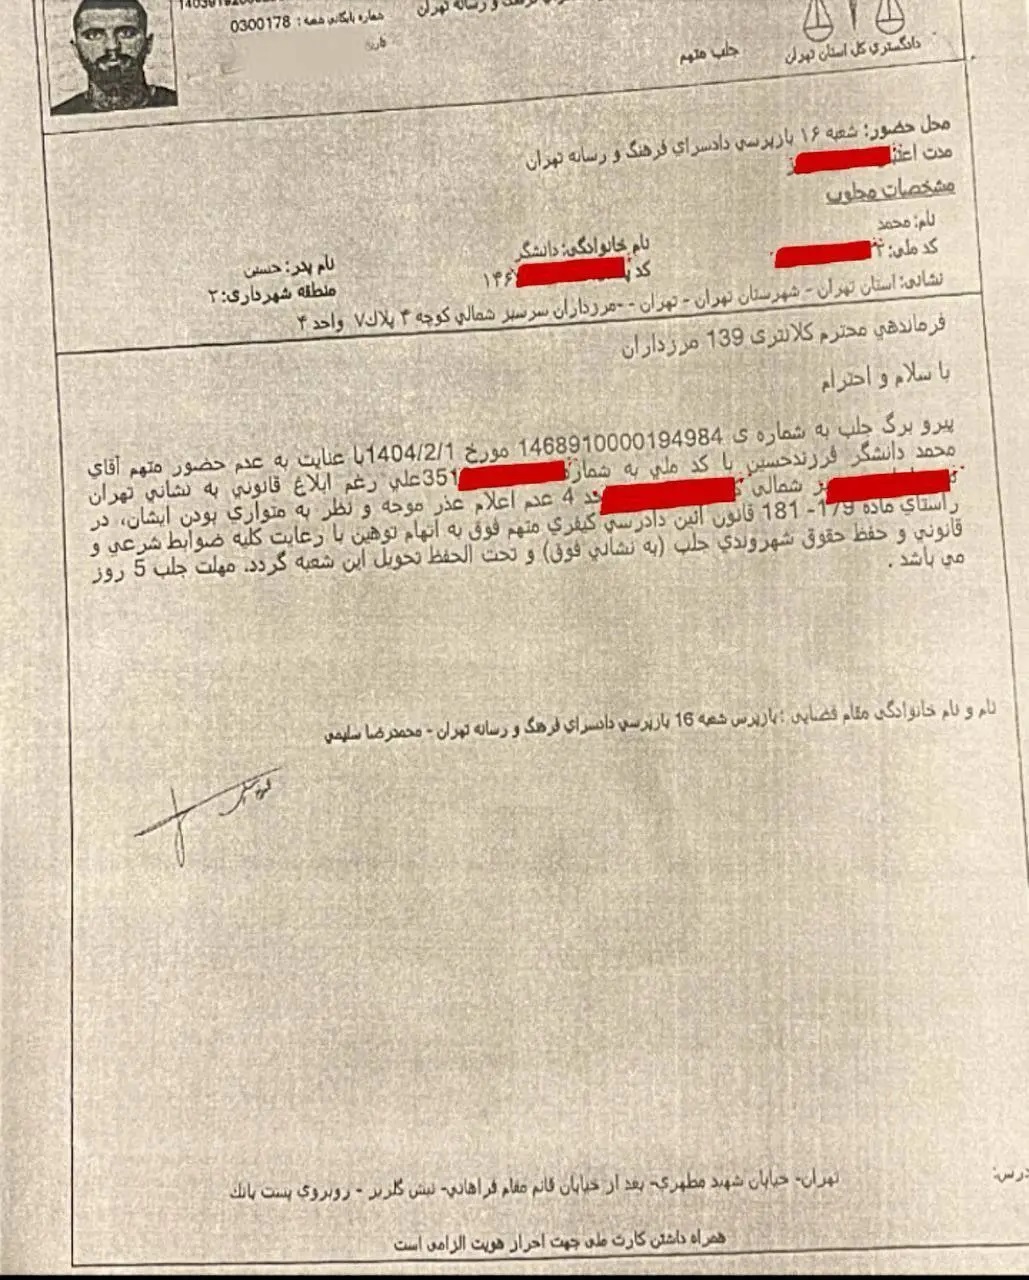 شماره بایگانی شعبه: 0300178
تاریخ
و رسانه تهران
دادگستری کل استان تهران
جلب متهم
محل حضور: شعبه ۱۶ بازپرسي دادسراي فرهنگ و رسانه تهران
مدت
مشخصات مجلوب
نام: محمد نام خانوادگی: دانشگر نام پدر: حسین
کد ملی: کد ۱۴۶ منطقه شهرداری: ۲
نشانی: استان تهران - شهرستان تهران - تهران - -مرزداران سرسبز شمالي کوچه ۴ پلاک۷ واحد ۴
فرماندهي محترم کلانتری 139 مرزداران
با سلام و احترام
پیرو برگ جلب به شماره ی 1468910000194984 مورخ 1404/2/1با عنایت به عدم حضور متهم آقاي
محمد دانشگر فرزندحسین با کد ملي به شماره 351علي رغم ابلاغ قانوني به نشاني تهران
شمالی 4 عدم اعلام عذر موجه و نظر به متواري بودن ایشان، در
راستاي ماده 179- 181 قانون آئین دادرسي کیفري متهم فوق به اتهام توهین با رعایت کلیه ضوابط شرعي و
قانوني و حفظ حقوق شهروندي جلب (به نشاني فوق) و تحت الحفظ تحویل این شعبه گردد. مهلت جلب 5 روز
مي باشد .
نام و نام خانوادگی مقام قضایی : بازپرس شعبه 16 بازپرسي دادسراي فرهنگ و رسانه تهران - محمدرضا سلیمي
تهران- خیابان شهید مطهري- بعد از خیابان قائم مقام فراهاني- نبش گلریز - روبروي پست بانک
همراه داشتن کارت ملی جهت احراز هویت الزامی است